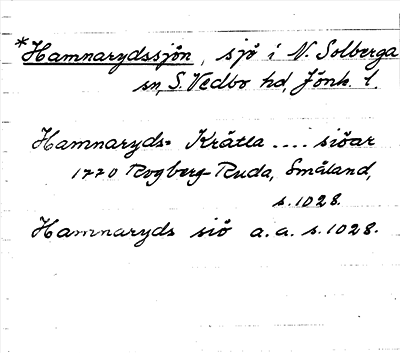 *Hamnarydssjön, sjö i N. Solberga
sn, S. Vedbo hd, Jönk. l.
Hamnaryds- Krätla .... siöar
1770 Rogberg-Ruda, Småland,
s. 1028.
Hamnaryds siö a.a. s. 1028.